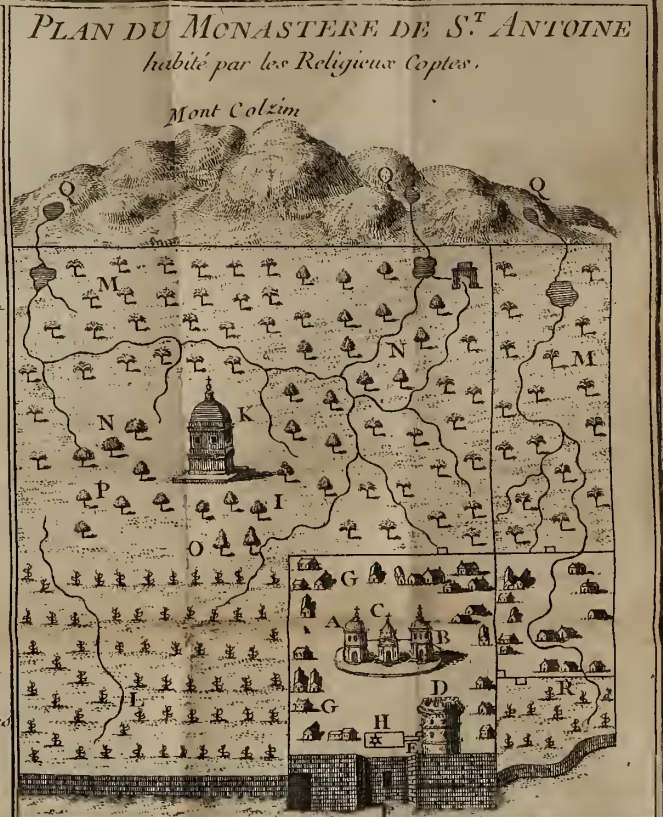 PLAN DU MONASTERE DE S.T ANTOINE
habité par les Religieux Coptes.
Mont Colzim
Q Q Q
M
N M
N K
P I
O
G
A C B
G D R
L H
E